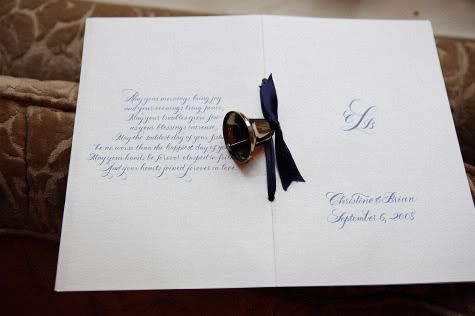 May your mornings bring joy
and your evenings bring peace,
May your troubles grow few
as your blessings increase,
May the saddest day of your futu
be no worse than the happiest day of you
May your hands be forever clasped in frien
And your hearts joined forever in love.
Christene & Brian
September 6, 2008